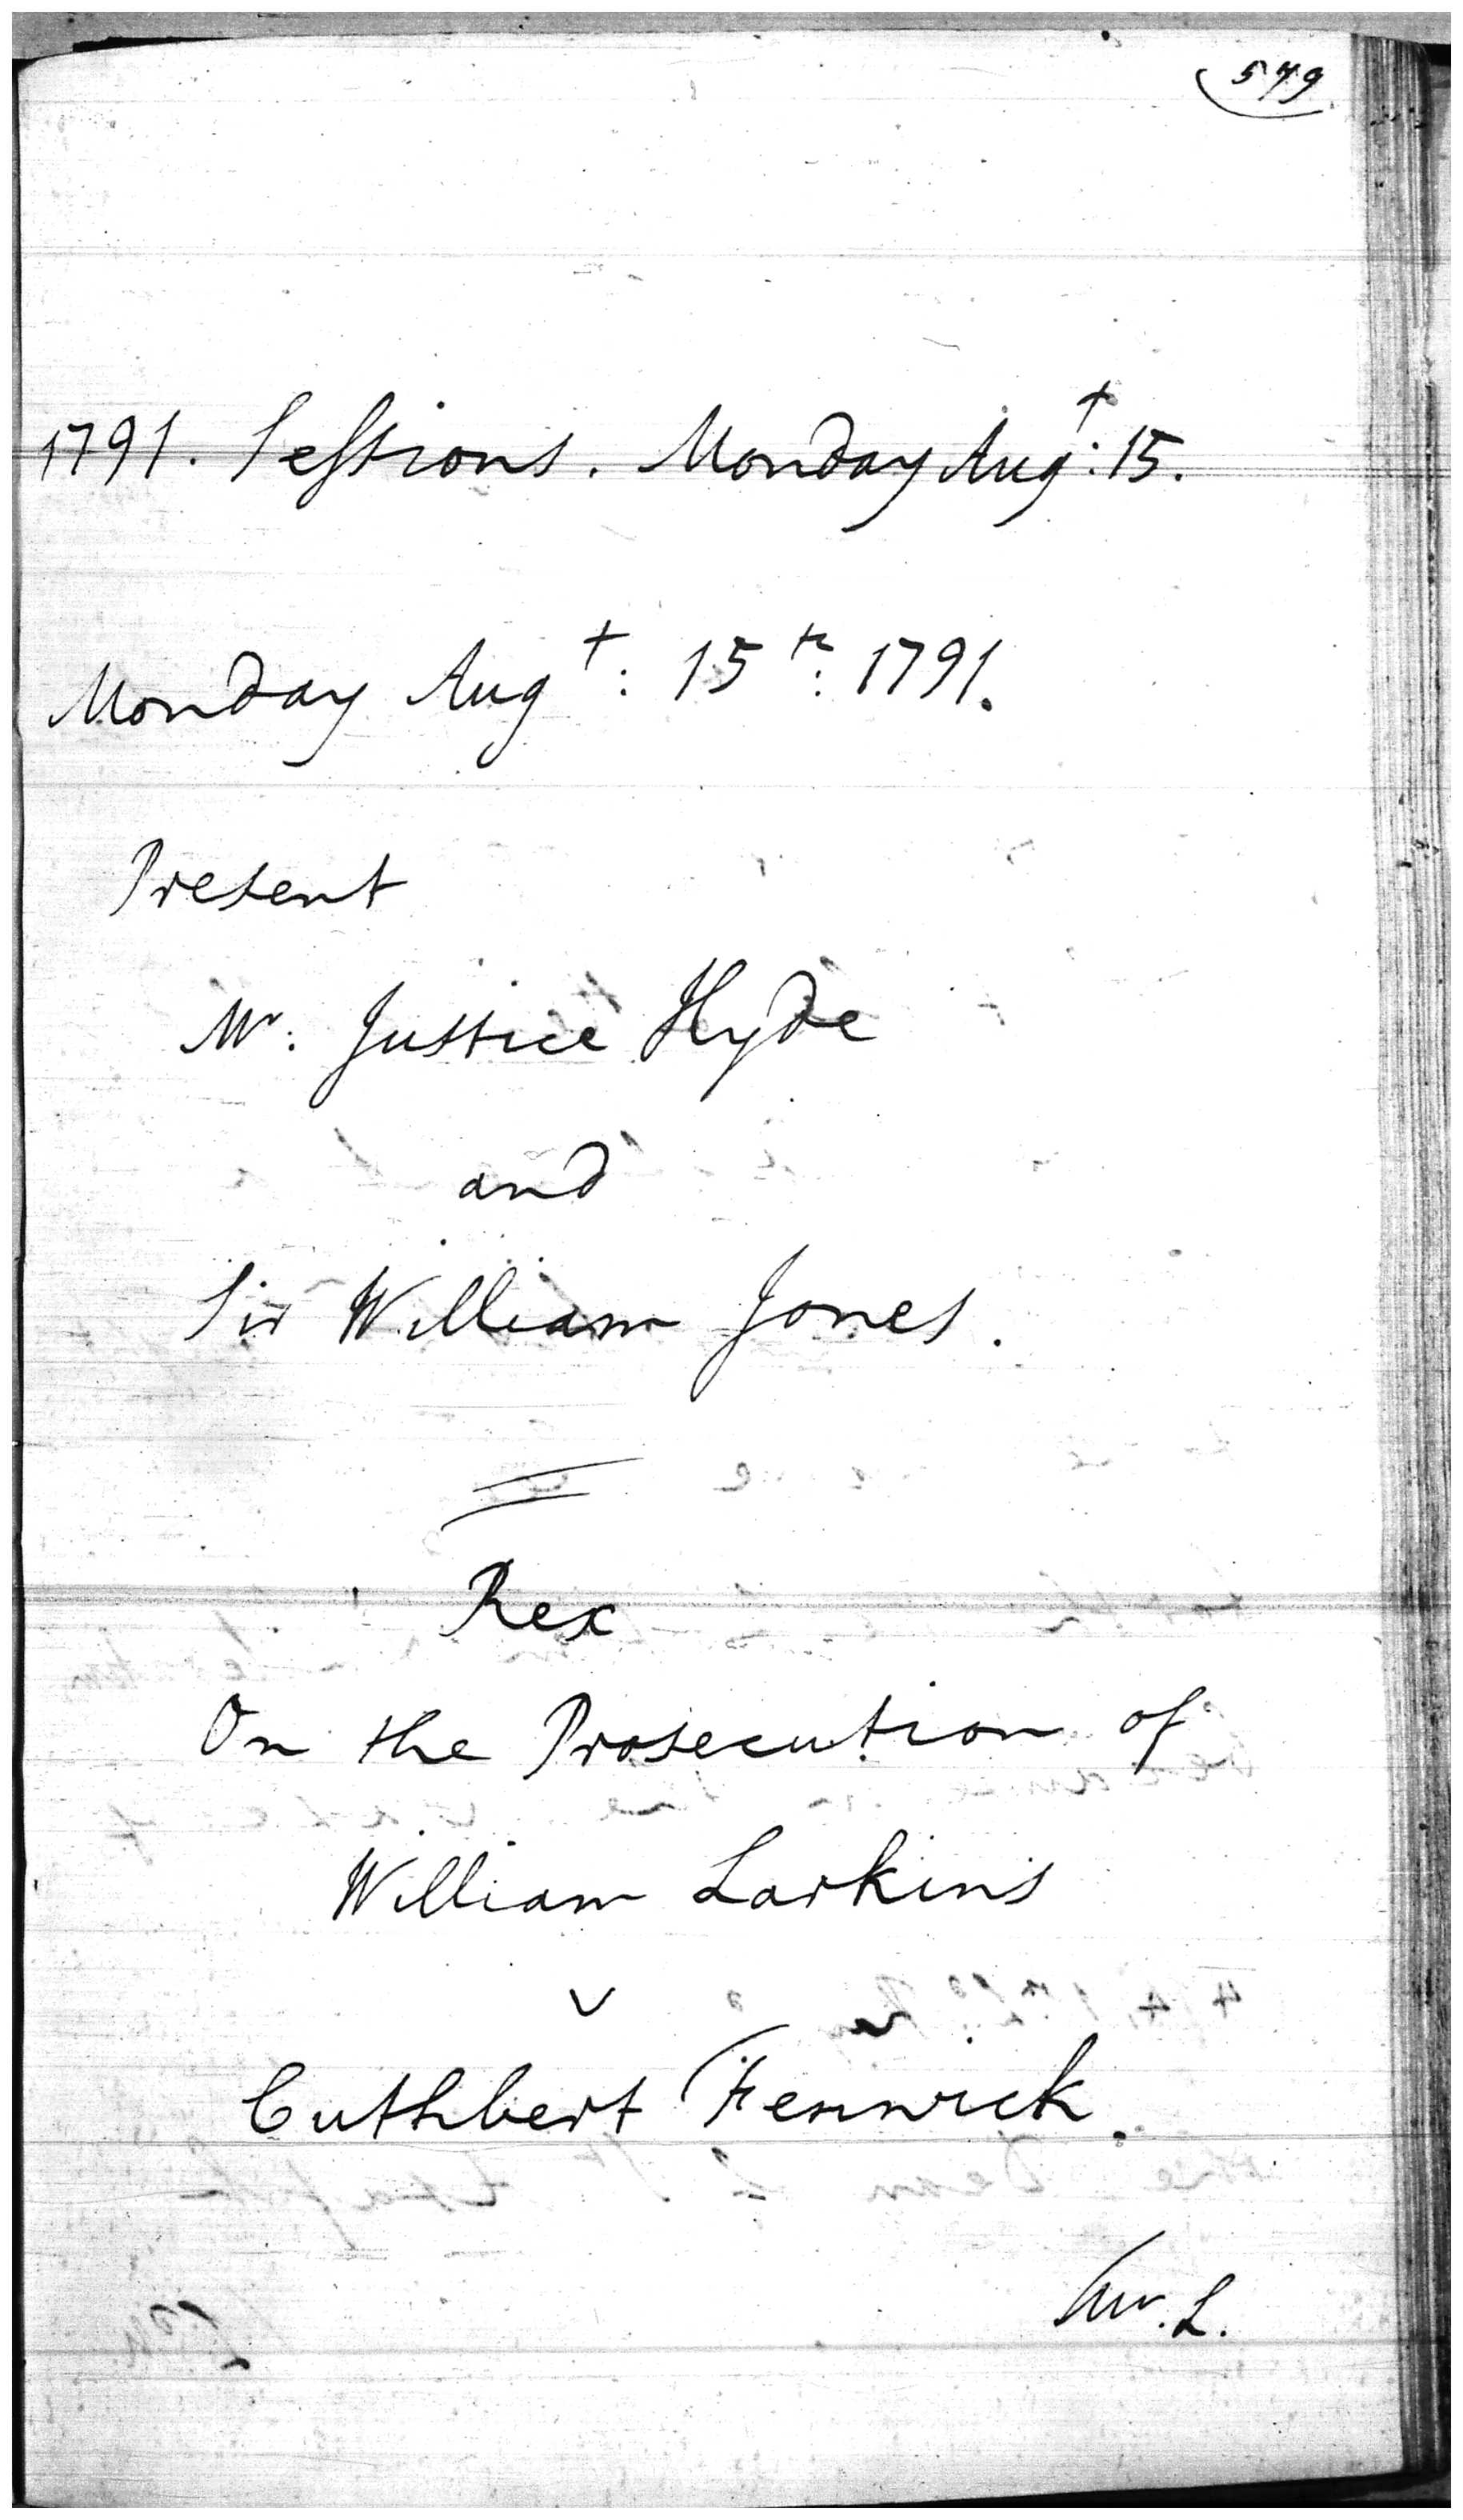 579
1791. Sessions. Monday Augt: 15.
Monday Augt: 15th: 1791.
Present
Mr: Justice Hyde
and
Sir William Jones.
Rex
On the Prosecution of
William Larkins
v
Cuthbert Fenwick.
Mr. L.